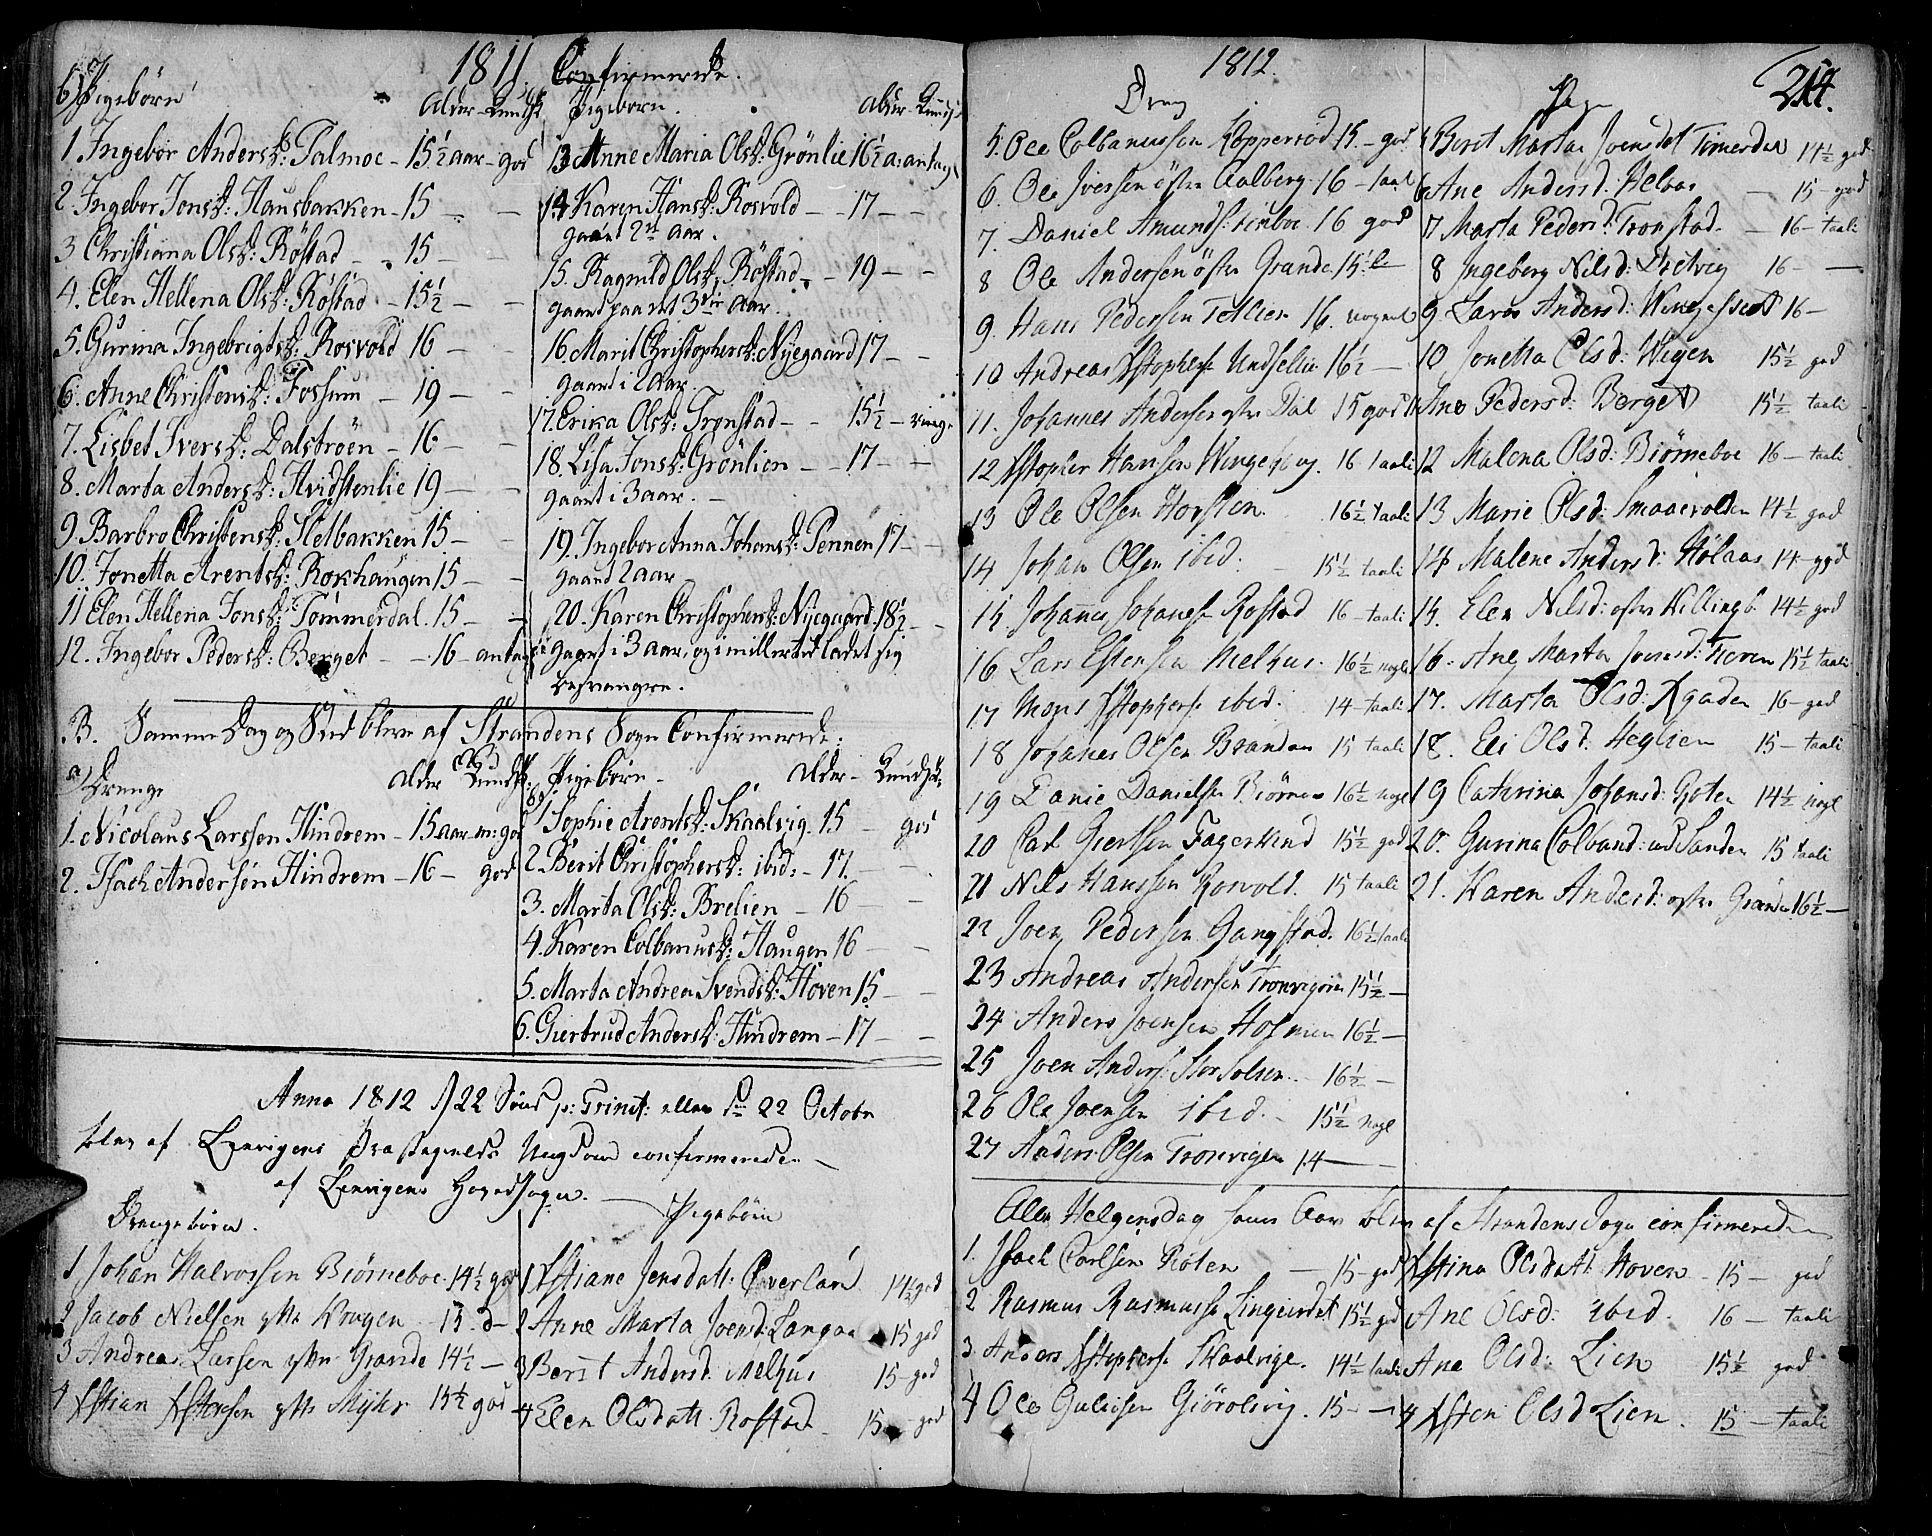 1811. Confirmerede.
b) Pigebørn
Alder - Kundsk
1. Ingebor Andersd: Talmoe - 15½ aar - god
2. Ingebor Jonsd: Hausbakken - 15 -
3 Christiana Olsd: Røstad - 15 -
4. Elen Hellena Olsd: Røstad - 15½ -
5. Gurina Ingebrigtsd: Rosvold 16 -
6. Anne Christensd: Fossum - 19 -
7. Lisbet Iversd: Dalstrøen - 16 -
8. Marta Andersd: Hvidstenlie 19 -
9. Barbro Christensd: Helbakken 15 -
10. Jonetta Arentsd: Rokhaugen 15 -
11 Elen Hellena Jonsd: Tømmerdal. 15 -
12. Ingebor Pedersd: Berget - 16 - antag
Pigebørn.
Alder - Kundsk
13 Anne Maria Olsd: Grönlie 16½ a: antag
14 Karen Hansd: Rosvold - 17 -
gaaet 2et aar.
15. Ragnild Olsd: Røstad - 19 -
gaaet paa det 3die aar.
16 Marit Christophersd: Nyegaard 17 -
gaaet i 2 aar.
17. Erika Olsd: Trønstad - 15½ - ringe
18. Lisa Jonsd: Grönlien - 17 -
gaaet i 3 aar. -
19. Ingebor Anna Johansd: Pennen 17 -
gaaet 2 aar
20. Karen Christophersd: Nyegaard: 18½ -
gaaet i 3 aar, og imillertid ladet sig
besvangre.
B. Samme Dag og Sted bleve af Strandens Sogn Confirmerede.
a) Drenge
Alder Kundsk:
1. Nicolaus Larssen Hindrem - 15 aar m: god
2. Isach Andersen Hindrem - 16 - god
b) Pigebørn -
Alder - Kundsk:
1 Sophie Arentsd: Skaalvig. 15 - god
2. Berit Christophersd: ibid: - 17. -
3. Marta Olsd: Brelien - 16 -
4. Karen Colbanusd: Haugen 16 -
5. Marta Andrea Svendsd: Hoven 15 -
6. Giertrud Andersd: Hindrem - 17 -
Anno 1812 D 22 Sönd p: Trinit: eller d 22 Octobr
blev af Lenvigens Præstegields Ungdom confirmerede -
af Lenvigens Hovedsogn. -
Drengebørn.
1 Johan Halvorssen Biörneboe 14½ god
2 Jacob Nielsen ytte Kragen 15. d -
3 Andreas Larsen yttre Grande 14½ -
4 Xstian Xstensen yttr Myhr 15½ god
Pigebörn
1 Xstiane Jensdatt: Overland 14½ god
2 Anne Marta Joensd: Langaa 15 god
3 Beret Andersd. Melhus 15 - god
4 Elen Olsdatt. Rostad 15 - god
1812.
Dreng
5. Ole Colbanussen Kopperrød 15. - god
6. Ole Iverssen östre Aalberg 16 - taal
7. Daniel Amunds: 16 god
8 Ole Andersen östre Grande 15½
9. Hans Pedersen Tetlien 16. nogenl
10 Andreas Xstophers Undsellie 16½ -
11. Johannes Anderser östre Dal 15 god
12 Xstopher Hansen Wingesbog. 16 taali
13 Ole Olsen Horsten 16½ taali
14 Johan Olsen ibid. - 15½ taali
15. Johannes Johanes Rostad 16 - taali
16 Lars Estensen Melhus. 16½ nogle
17 Mogns Xstophers ibid. 14 - taali
18 Johanes Olsen Brandaa 15 taali
19 Danie Danielsen Biörnaa 16½ nogl
20 Carl Giertsen Fagerstrand 15½ god
21 Nils Hanssen Rosvold. 15 taali
22 Joen Pedersen Gangstad. 16½ taali
23 Andreas Andersen Tronvigen 15½ -
24 Anders Joensen Hofmen 16½ -
25 Joen Anders: StorSolsen. 16½ -
26 Ole Joensen ibid. 15½ nogl
27 Anders Olsen Tronvigen 14 -
214.
Pige
5 Berit Marta Joensdt Timerdal 14½ god
6 Ane Andersd: Helaas - 15 - god
7 Marta Pedersd: Tronstad. - 16 - taali
8 Ingeberg Nilsd: Dretvig 16 -
9 Lares Andersd: Wing 16 -
10 Jonetta Olsd: Wigen 15½ god
11 Ane Pedersd: Berget 15½ taali
12 Malena Olsd: Biörneboe 16 - taali
13 Marie Olsd: Smaaevolden 14½ god
14 Malene Andersd: Hölaas 14 - god
15. Elen Nilsd: östre Killingb. 14½ god
16. Ane Marta Joensd: Foren 15½ taali
17. Marta Olsd: Xgaden 16 - god
18. Eli Olsd: Heglien 15 - taali
19 Cathrina Johansd: Roten 14½ nogl
20. Gurina Colband: ved Sanden 15 taali
21. Karen Andersd: östre Grande 16½ -
Alle Helgensdag samme Aar blev af Strandens Sogn confirmerede
1. Isach Carlsen Roten - 15 - god
2 Rasmus Rasmusse Lingerdet 15½ god
3 Anders Xstopherse Skaalvige. 14½ taali
4 Ole Guliksen Giörolvig. 15 -
Xstina Olsdatt. Hoven - 15 - god
Ane Olsd: ibid. 16 - taali
Ane Olsd: Lien 15½ god
4 Xsten Olsd Lien. 15 - taali